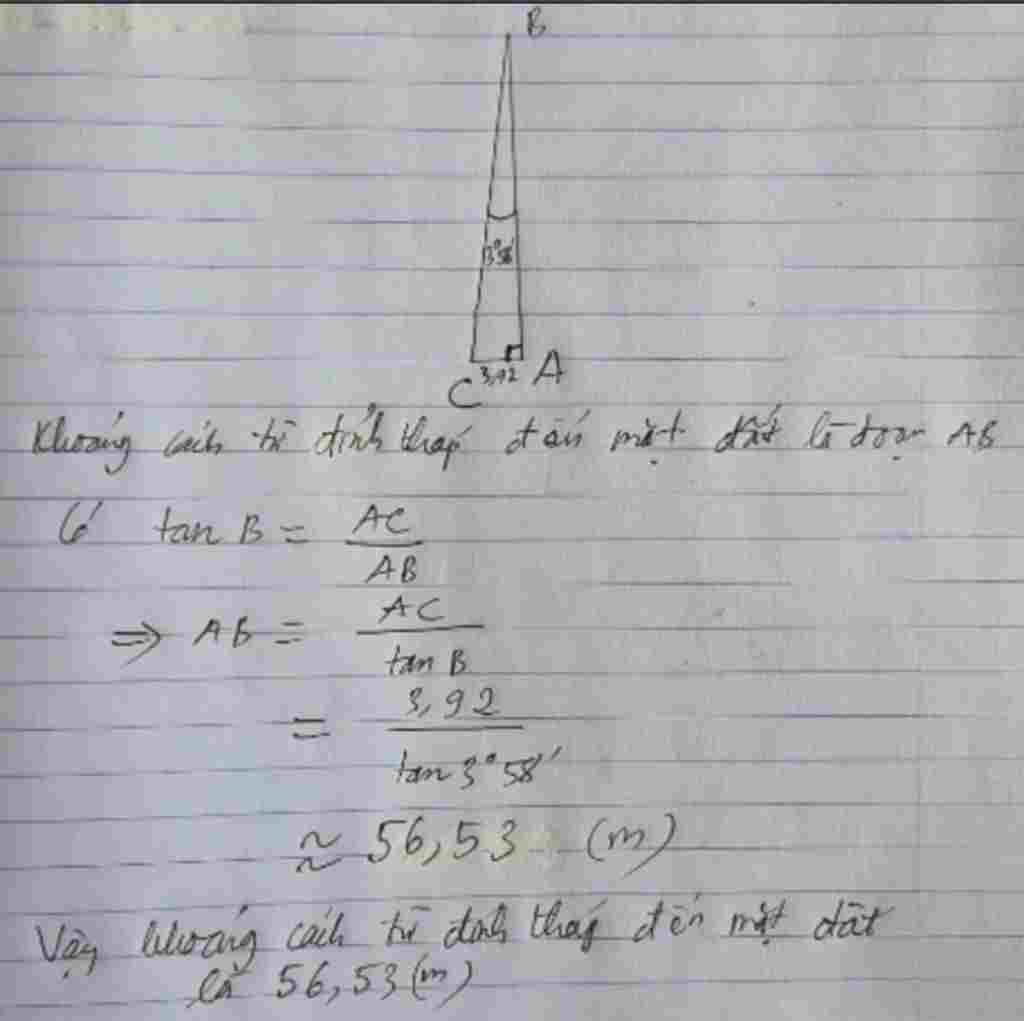 B
3°58'
3,92 A
C
Khoảng cách từ đỉnh tháp đến mặt đất là đoạn AB
Có tan B = AC / AB
⇒ AB = AC / tan B
= 3,92 / tan 3°58'
≈ 56,53 (m)
Vậy khoảng cách từ đỉnh tháp đến mặt đất
là 56,53 (m)